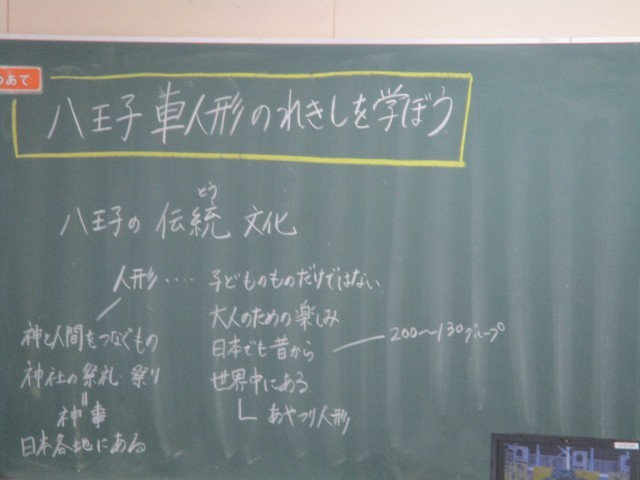 めあて
八王子車人形のれきしを学ぼう
とう
八王子の伝統文化
人形‥‥子どものものだけではない
大人のための楽しみ
日本でも昔から
200〜130グループ
世界中にある
あやつり人形
神と人間をつなぐもの
神社の祭礼・祭り
=
神車
日本各地にある